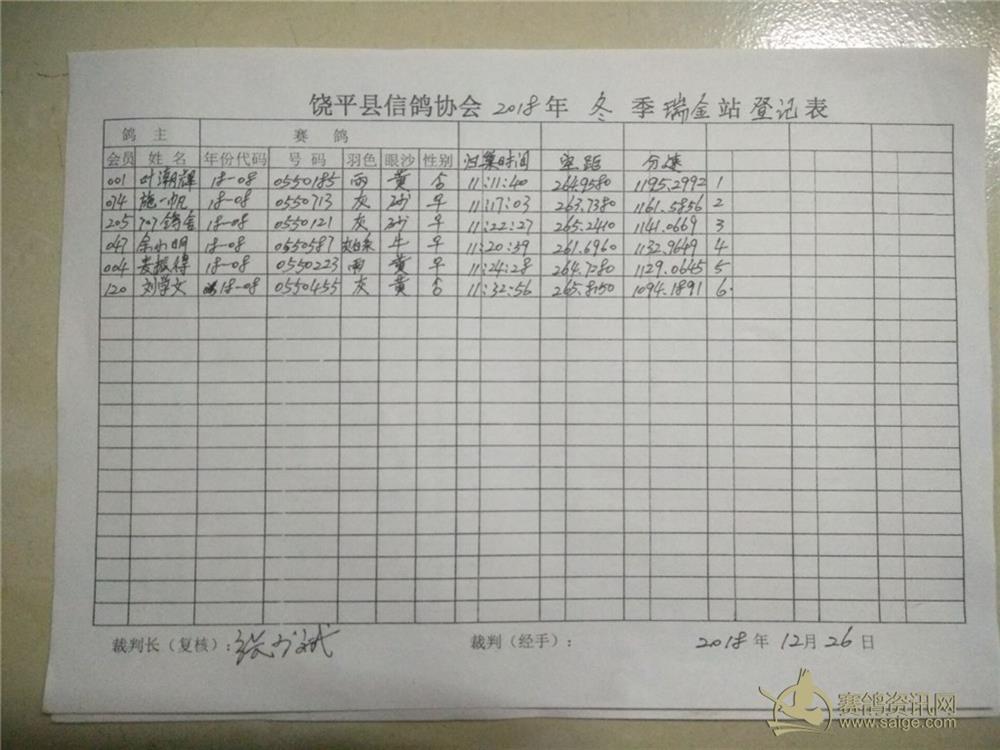 饶平县信鸽协会 2018年 冬 季 瑞金 站 登记表
鸽 主 赛 鸽
会员 姓 名 年份代码 号 码 羽色 眼沙 性别 归巢时间 空距 分速
001 叶潮辉 18-08 0550185 雨 黄 合 11:11:40 264.9580 1195.2992 1
074 施一帆 18-08 0550713 灰 砂 早 11:17:03 263.7380 1161.5856 2
205 18-08 0550121 灰 砂 早 11:22:27 265.2410 1141.0669 3
047 余小明 18-08 0550587 牛 早 11:20:39 261.6960 1132.9649 4
004 18-08 0550223 雨 黄 早 11:24:28 264.7280 1129.0645 5
120 刘学文 18-08 0550455 灰 黄 合 11:32:56 265.8150 1094.1891 6.
裁判长（复核）： 裁判（经手）： 2018 年 12月 26 日
赛鸽资讯网
www.saige.com